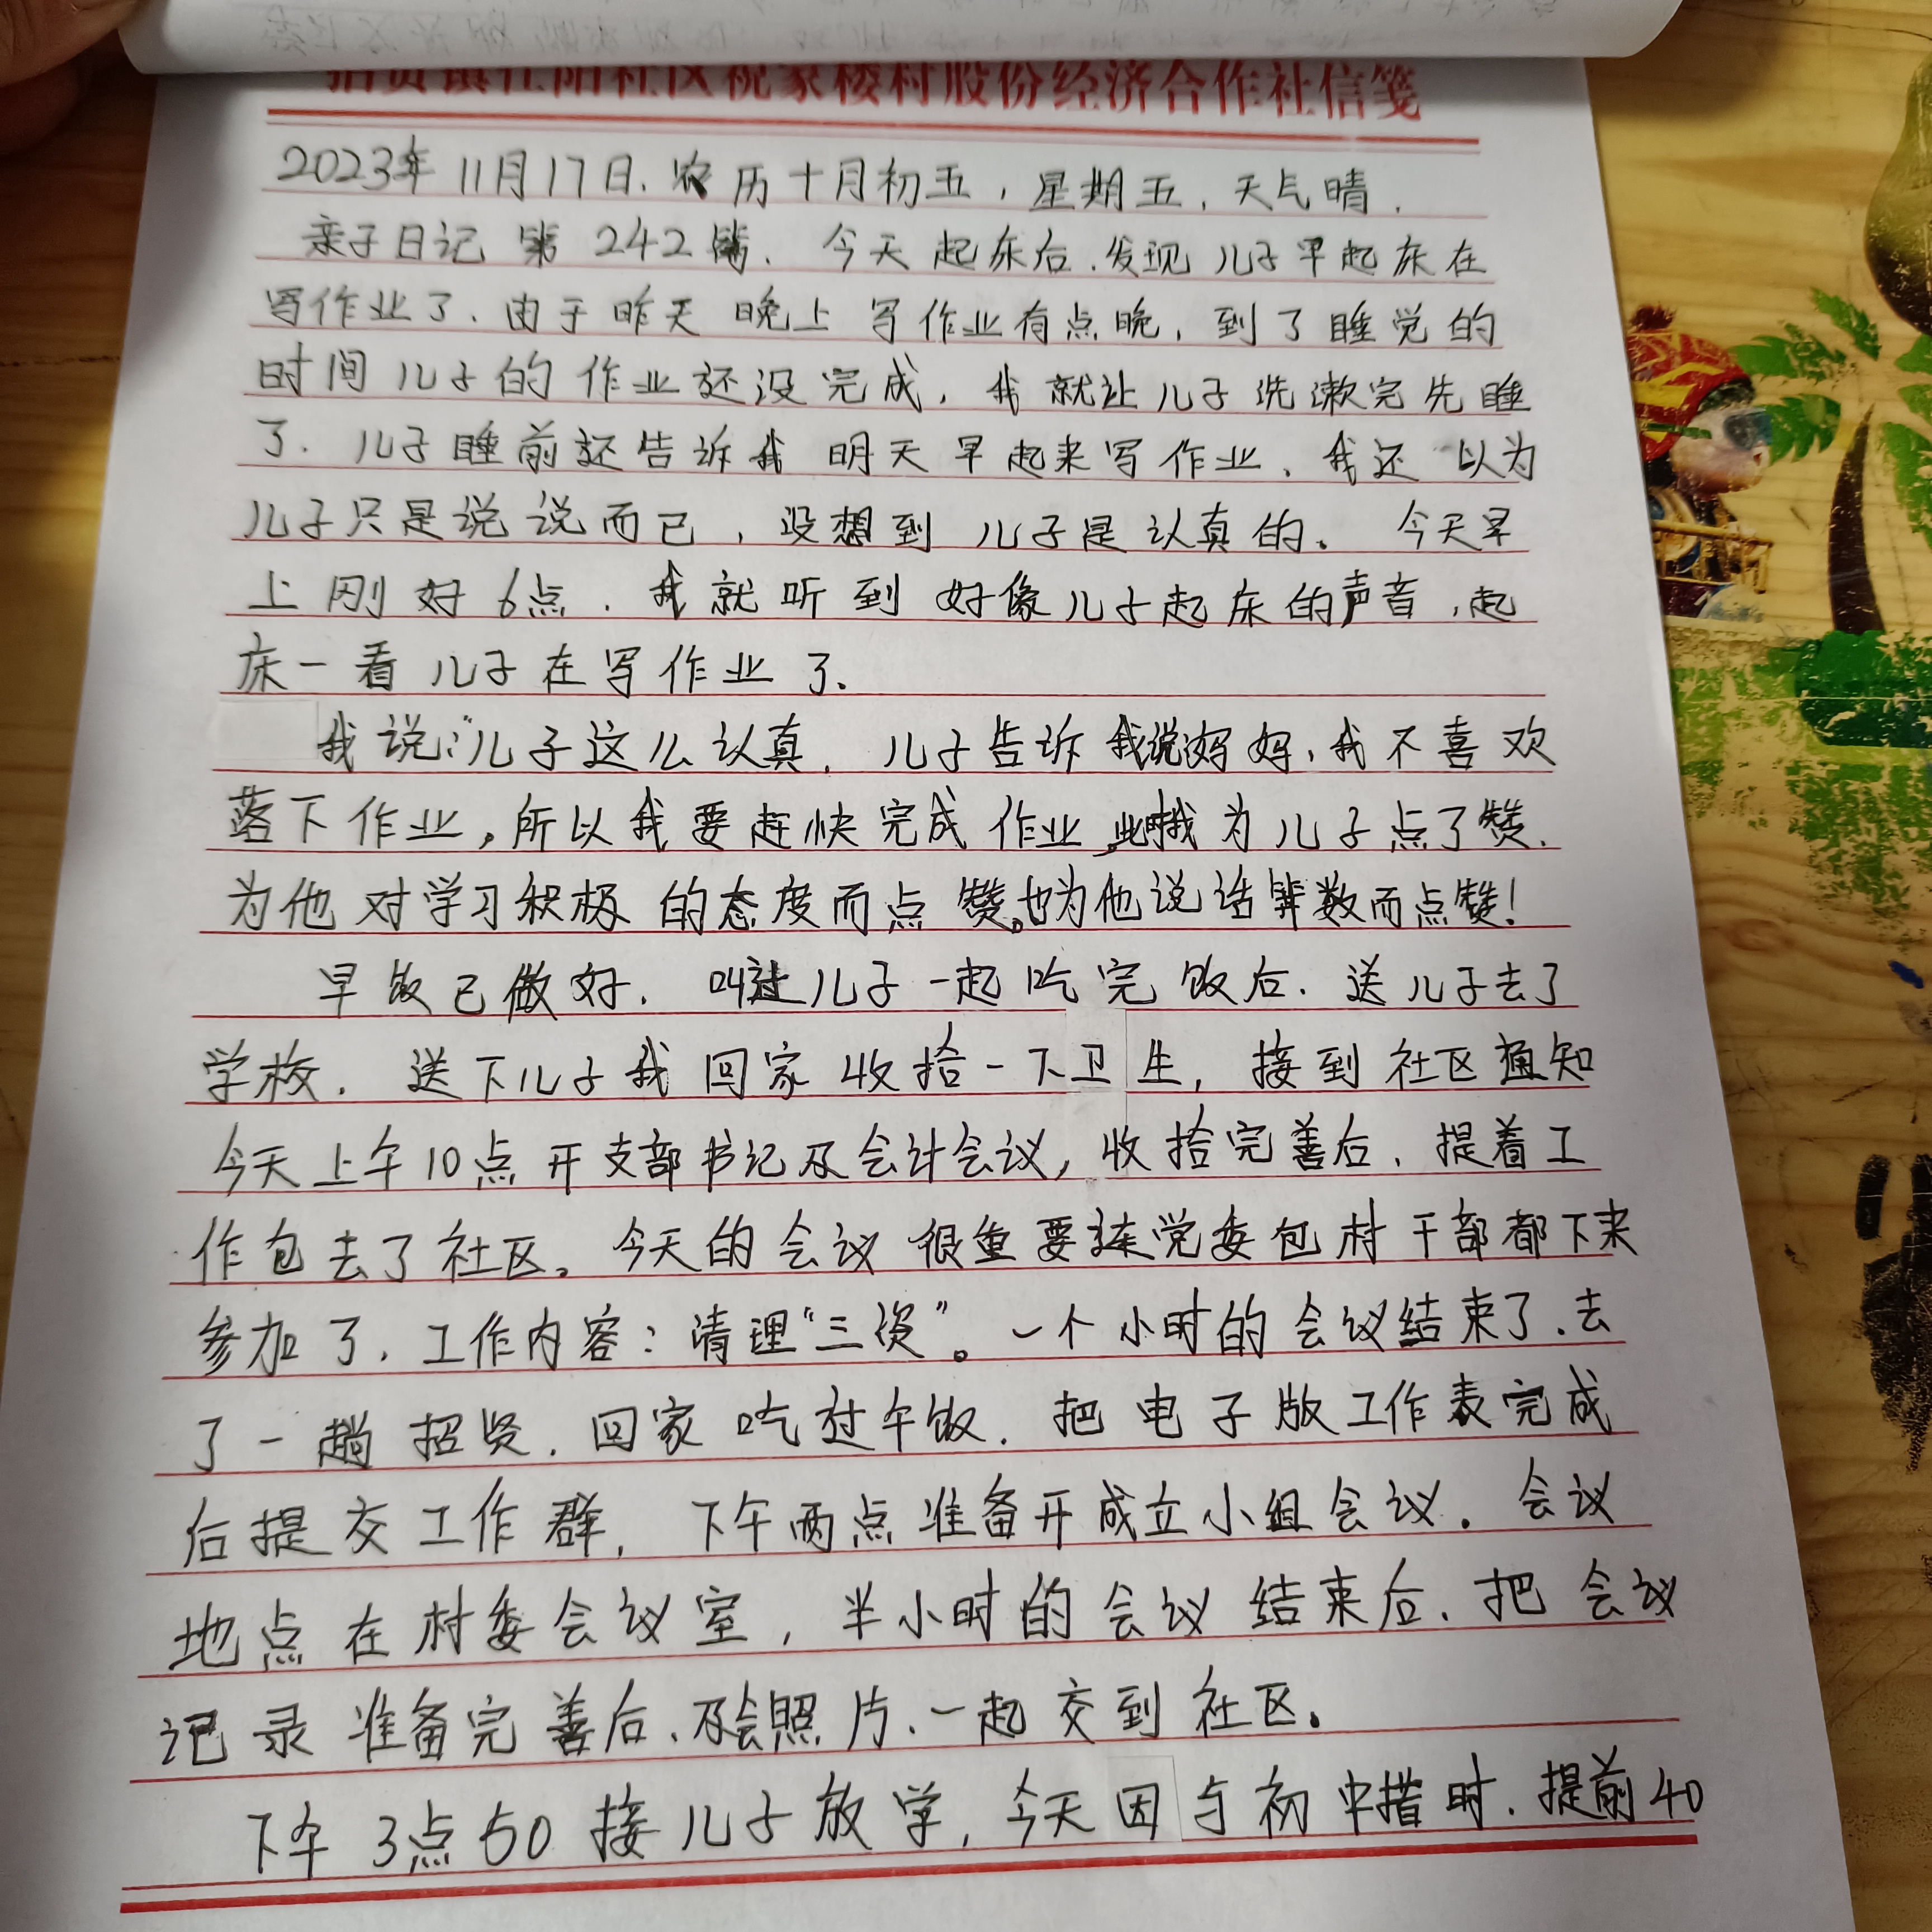 招贤镇江阳社区祝家楼村股份经济合作社信笺
2023年11月17日、农历十月初五，星期五，天气晴．
亲子日记 第242篇． 今天起床后，发现儿子早起床在
写作业了．由于昨天晚上写作业有点晚，到了睡觉的
时间儿子的作业还没完成，我就让儿子洗漱完先睡
了．儿子睡前还告诉我明天早起来写作业，我还以为
儿子只是说说而已，没想到儿子是认真的。 今天早
上刚好6点．我就听到好像儿子起床的声音，起
床一看儿子在写作业了．
我说：“儿子这么认真．儿子告诉我说妈妈，我不喜欢
落下作业，所以我要赶快完成作业，此时我为儿子点了赞．
为他对学习积极的态度而点赞。也为他说话算数而点赞！
早饭已做好．叫过儿子一起吃完饭后．送儿子去了
学校．送下儿子我回家收拾一下卫生，接到社区通知
今天上午10点开支部书记及会计会议，收拾完善后．提着工
作包去了社区。今天的会议很重要连党委包村干部都下来
参加了．工作内容：清理“三资”。一个小时的会议结束了．去
了一趟招贤．回家吃过午饭．把电子版工作表完成
后提交工作群，下午两点准备开成立小组会议．会议
地点在村委会议室，半小时的会议结束后．把会议
记录准备完善后、及会照片、一起交到社区。
下午3点50接儿子放学，今天因与初中错时．提前40